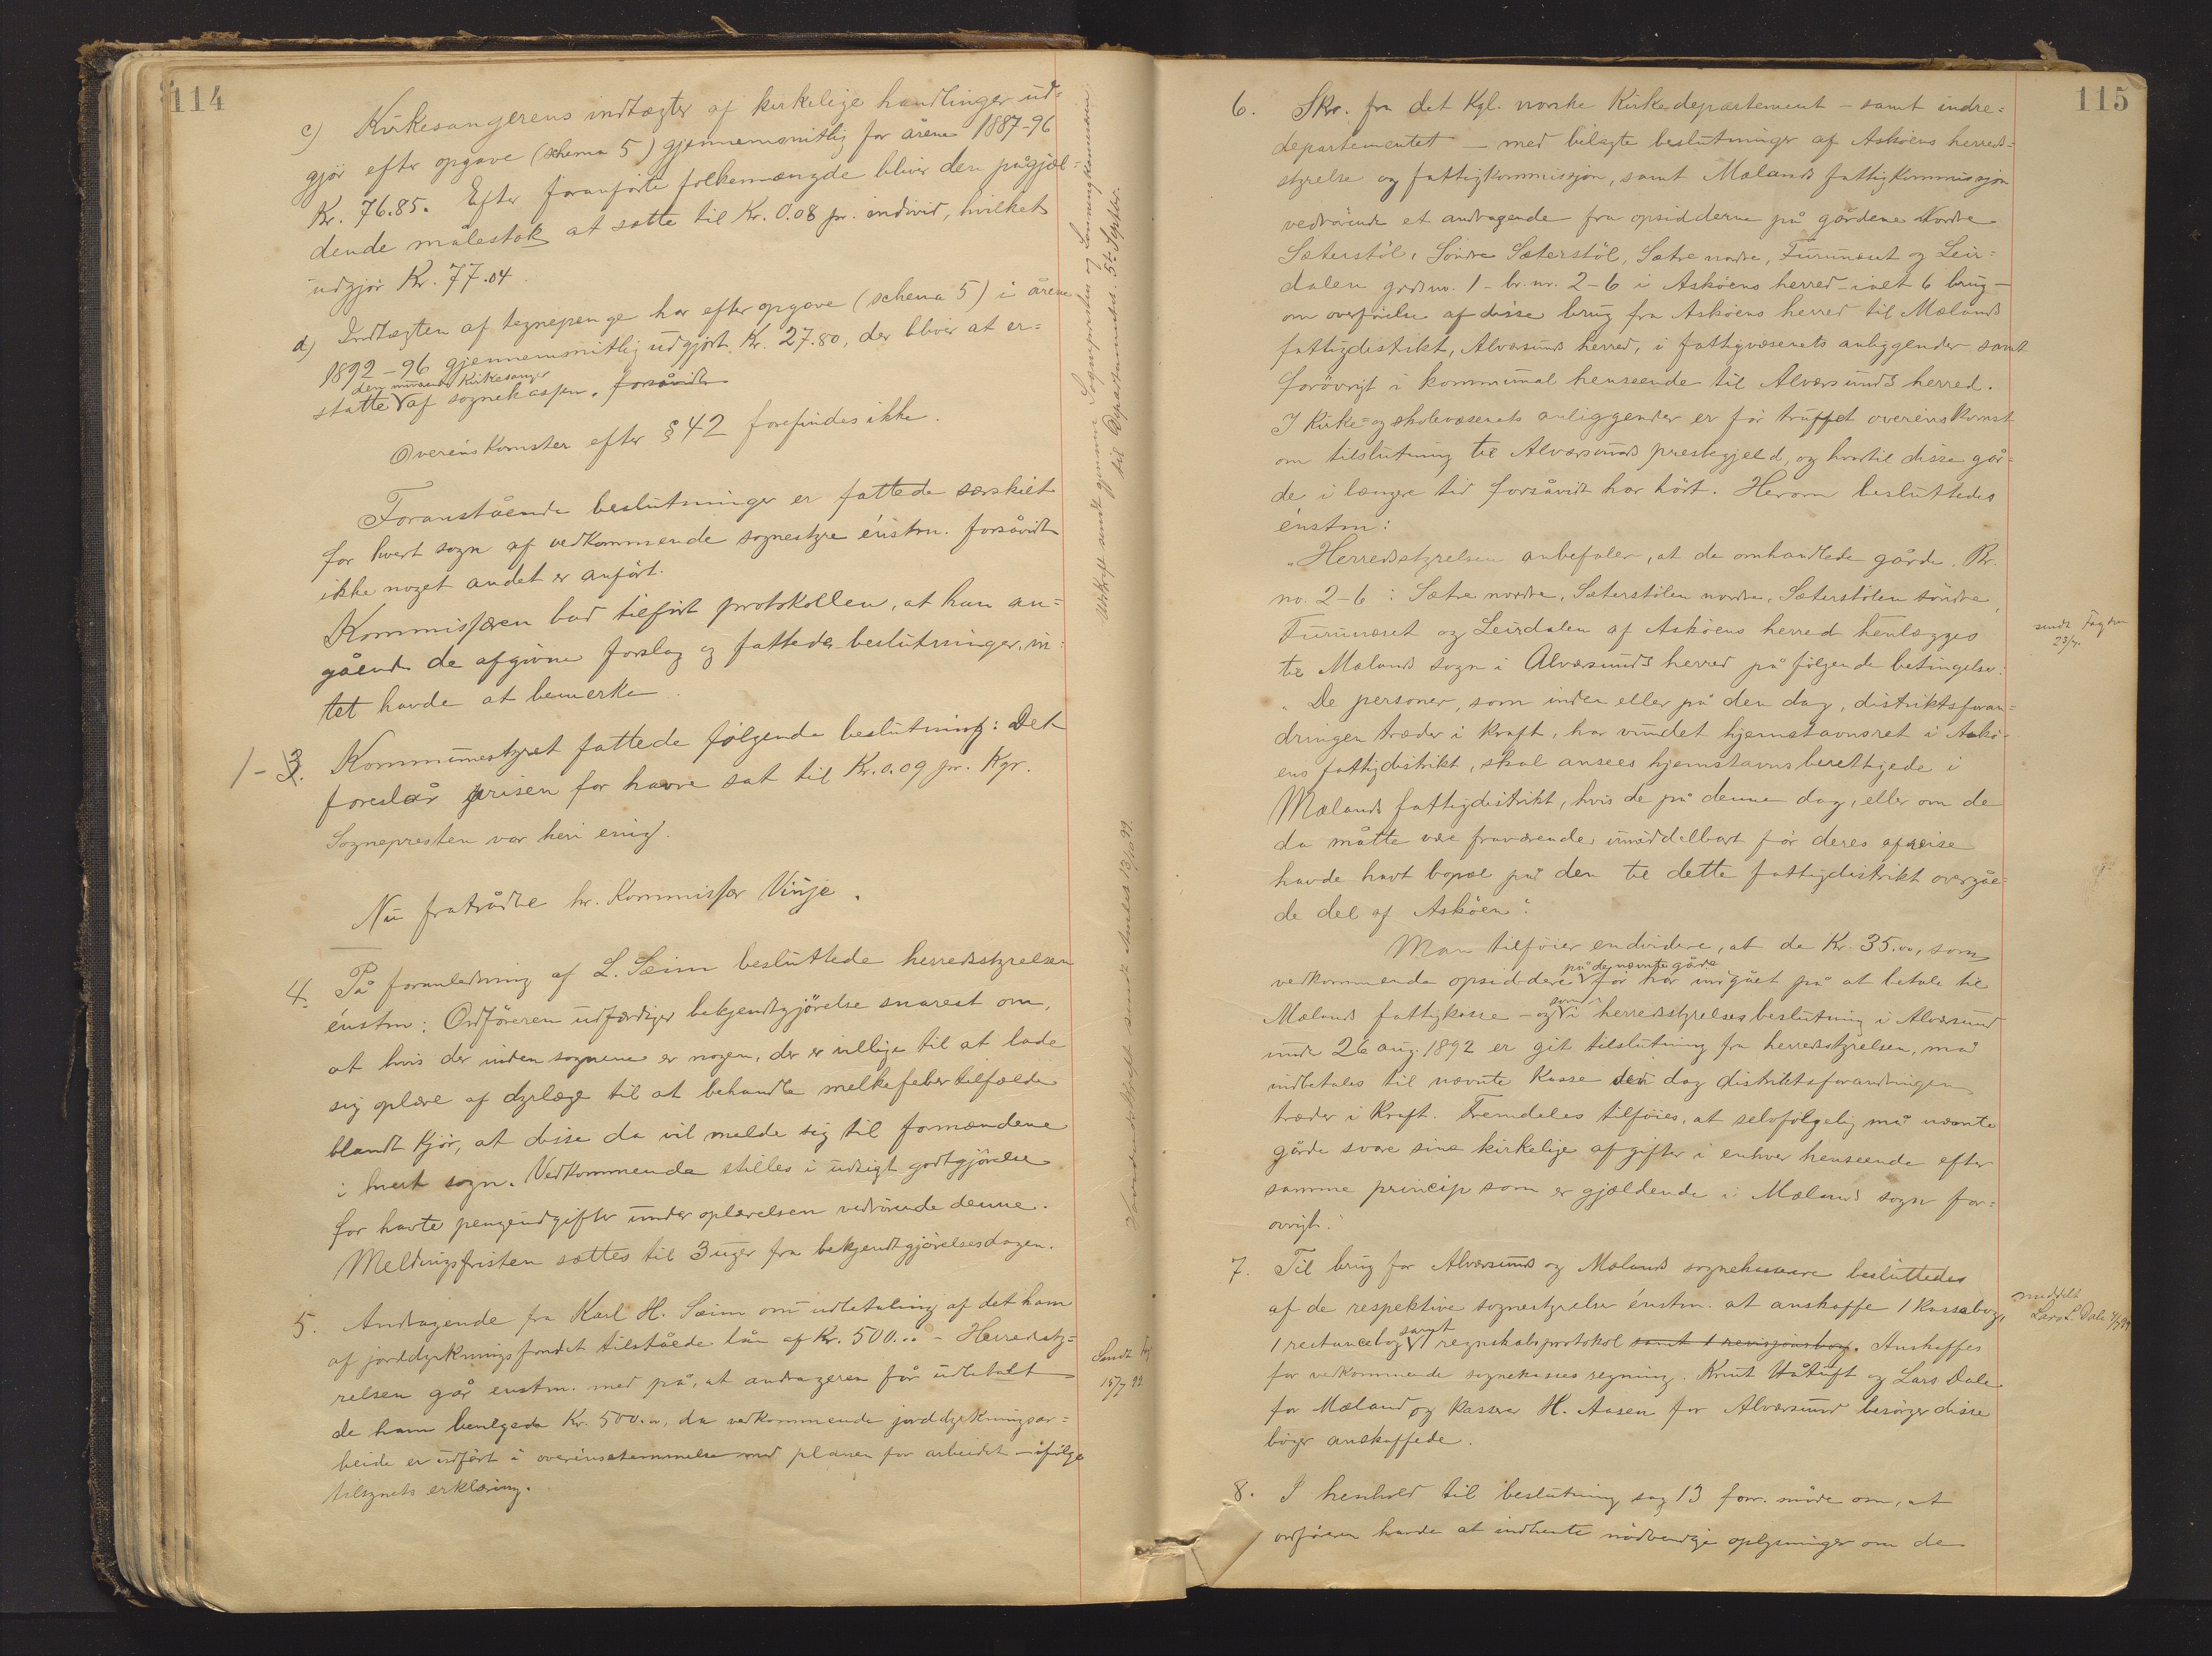 114
c) Kirkesangerens indtægter af kirkelige handlinger ud-
gjør efter opgave (schema 5) gjennemsnitlig for årene 1887-96
Kr. 76.85. Efter foranførte folkemængde bliver den pågjæl-
dende målestok at sætte til Kr. 0.08 pr. individ, hvilket
udgjør Kr. 77.04.
d) Indtægten af tegnepenge har efter opgave (schema 5) i årene
1892-96 gjennemsnitlig udgjort Kr. 27.80, der bliver at er-
den nuværende Kirkesanger
statte af sognekassen. forsåvidt
Overenskomster efter § 42 forefindes ikke.
Foranstående beslutninger er fattede særskilt
for hvert sogn af vedkommende sognestyre énstm. forsåvidt
ikke noget andet er anført.
Kommissæren bad tilført protokollen, at han an-
gående de afgivne forslag og fattede beslutninger in-
tet havde at bemerke.
1-3. Kommunestyret fattede følgende beslutning: Det
foreslår prisen for havre sat til Kr. 0.09 pr. Kgr.
Sognepresten var heri enig.
Nu fratrådte hr. Kommissær Vinje.
4. På foranledning af L. Seim besluttede herredsstyrelsen
énstm: Ordføreren udfærdiger bekjendtgjørelse snarest om,
at hvis der inden sognene er nogen, der er villige til at lade
sig oplære af dyrlæge til at behandle melkefebertilfælde
blandt kjør, at disse da vil melde sig til formændene
i hvert sogn. Vedkommende stilles i udsigt godtgjørelse
for havte pengeudgifter under oplærelsen vedrørende denne.
Meldingsfristen sættes til 3 uger fra bekjendtgjørelsesdagen.
5. Andragende fra Karl H. Seim om udbetaling af det ham
af jorddyrkningsfondet tilståede lån af Kr. 500.00 - Herredsty-
relsen går enstm. med på, at andrageren får udbetalt
de ham bevilgede Kr. 500.00, da vedkommende jorddyrkningsar-
beide er udført i overensstemmelse med planen for arbeidet - ifølge
tilsynets erklæring.
Sendt
15/7 99.
Udskrift sendt gjennem Sognepresten og Lønningskommissionen
til Departementet. 5te Septbr.
sendt Amtet 13/10 99.
115
6. Skr. fra det Kgl. norske Kirkedepartement - samt indre-
departementet - med bilagte beslutninger af Askøens herreds-
styrelse og fattigkommissjon, samt Mælands fattigkommissjon
vedrørende et andragende fra opsidderne på gårdene Nordre
Sæterstøl, Søndre Sæterstøl, Sætre nordre, Furuneset og Leir-
dalen gårdsno. 1 - br. nr. 2-6 i Askøens herred - ialt 6 brug -
om overførelse af disse brug fra Askøens herred til Mælands
fattigdistrikt, Alværsunds herred, i fattigvæsenets anliggender samt
forøvrigt i kommunal henseende til Alværsunds herred.
I Kirke- og skolevæsenets anliggender er før truffet overenskomst
om tilslutning til Alværsunds prestegjeld, og hvortil disse går-
de i længre tid forsåvidt har hørt. Herom besluttedes
énstm:
"Herredsstyrelsen anbefaler, at de omhandlede gårde, Br.
no. 2-6: Sætre nordre, Sæterstølen nordre, Sæterstølen søndre,
Furuneset og Leirdalen af Askøens herred henlægges
til Mælands sogn i Alværsunds herred på følgende betingelser:
"De personer, som inden eller på den dag, distriktsforan-
dringen træder i kraft, har vundet hjemstavnsret i Askø-
ens fattigdistrikt, skal ansees hjemstavnsberettigede i
Mælands fattigdistrikt, hvis de på denne dag, eller om de
da måtte være fraværende, umiddelbart før deres afreise
havde havt bopæl på den til dette fattigdistrikt overgåe-
de del af Askøen."
Man tilføier endvidere, at de Kr. 35.00, som
på de nævnte gårde
vedkommende opsiddere før har indgået på at betale til
som
Mælands fattigkasse - og i herredsstyrelses beslutning i Alværsund
under 26 aug. 1892 er git tilslutning fra herredsstyrelsen, må
indbetales til nævnte Kasse den dag distriktsforandringen
træder i Kraft. Fremdeles tilføies, at selvfølgelig må nævnte
gårde svare sine kirkelige afgifter i enhver henseende efter
samme princip som er gjældende i Mælands sogn for-
øvrigt."
sendt Fogden
23/7.
7. Til brug for Alværsunds og Mælands sognekasserere besluttedes
af de respektive sognestyrelser énstm. at anskaffe 1 Kassabog,
samt
1 restancebog 1 regnskabsprotokol samt 1 revisjonsbog. Anskaffes
for vedkommende sognekasses regning. Knut Håtuft og Lars Dale
for Mæland og kasserer H. Aasen for Alværsund besørger disse
bøger anskaffede.
meddelt
Lars L. Dale
8. I henhold til beslutning sag 13 forr. møde om, at
ordføreren havde at indhente nødvendige oplysninger om de